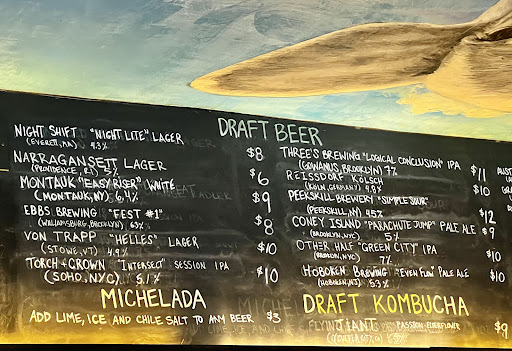 DRAFT BEER
NIGHT SHIFT "NIGHT LITE" LAGER $8
(EVERETT, MA) 4.3%
NARRAGANSETT LAGER $6
(PROVIDENCE, RI) 5%
MONTAUK "EASY RISER" WHITE $9
(MONTAUK, NY) 6.4%
EBBS BREWING "FEST #1" $8
(WILLIAMSBURG, BROOKLYN) 6.3%
VON TRAPP "HELLES" LAGER $10
(STOWE, VT) 4.9%
TORCH + CROWN "INTERSECT" SESSION IPA $10
(SOHO, NYC) 5.1%
MICHELADA
ADD LIME, ICE AND CHILE SALT TO ANY BEER $3
THREE'S BREWING "LOGICAL CONCLUSION" IPA $11
(GOWANUS, BROOKLYN) 7%
REISSDORF KÖLSCH $10
(KÖLN, GERMANY) 4.8%
PEEKSKILL BREWERY "SIMPLE SOUR" $12
(PEEKSKILL, NY) 4.5%
CONEY ISLAND "PARACHUTE JUMP" PALE ALE $9
(BROOKLYN, NYC) 5%
OTHER HALF "GREEN CITY" IPA $10
(BROOKLYN, NYC) 7%
HOBOKEN BREWING "EVEN FLOW" PALE ALE $10
(HOBOKEN, NJ) 5.3%
DRAFT KOMBUCHA
FLYING PASSION-ELDERFLOWER $9